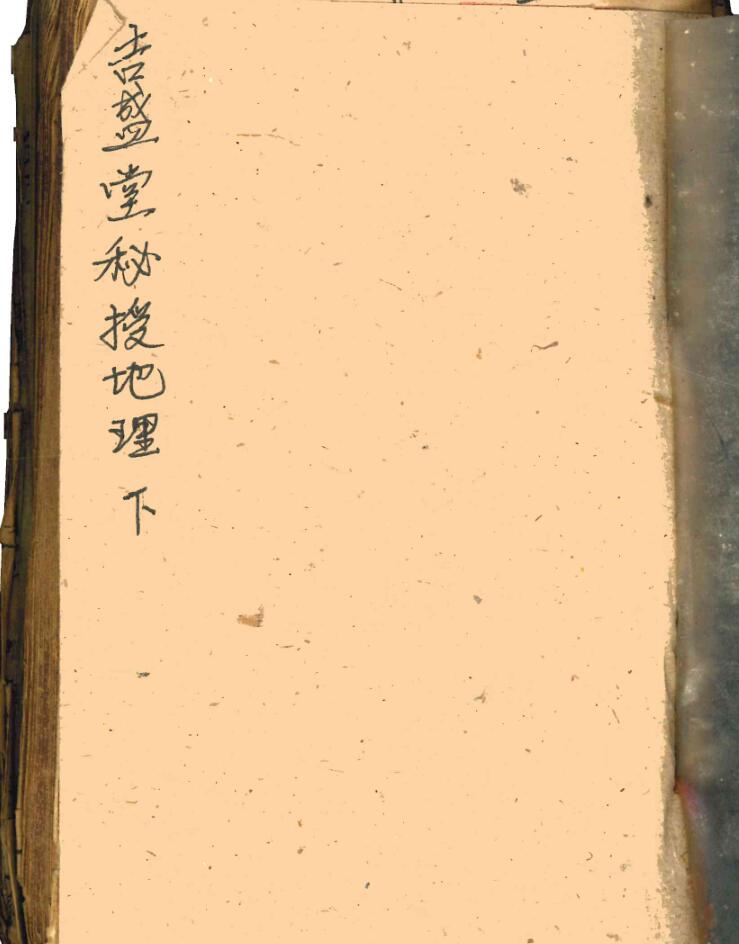 吉盛堂秘授地理 下